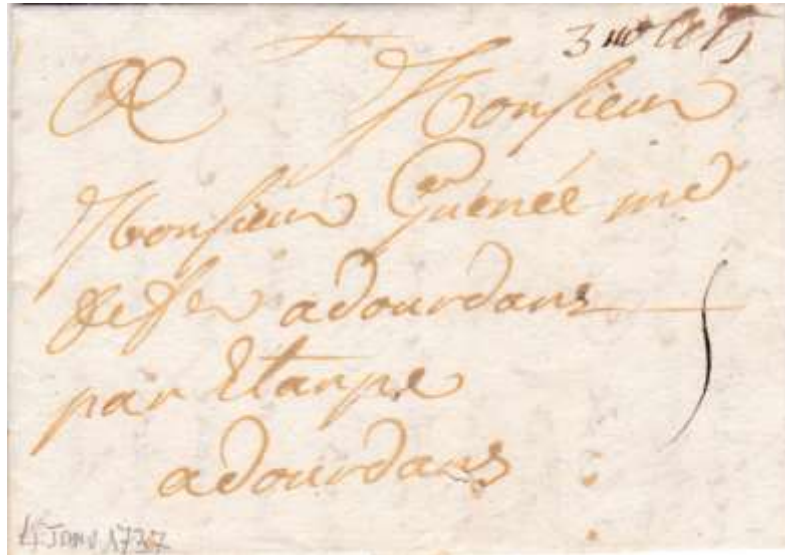 A Monsieur
Monsieur Guenée md
de fer a dourdans
par Etampe
a dourdans
4 Janv 1737